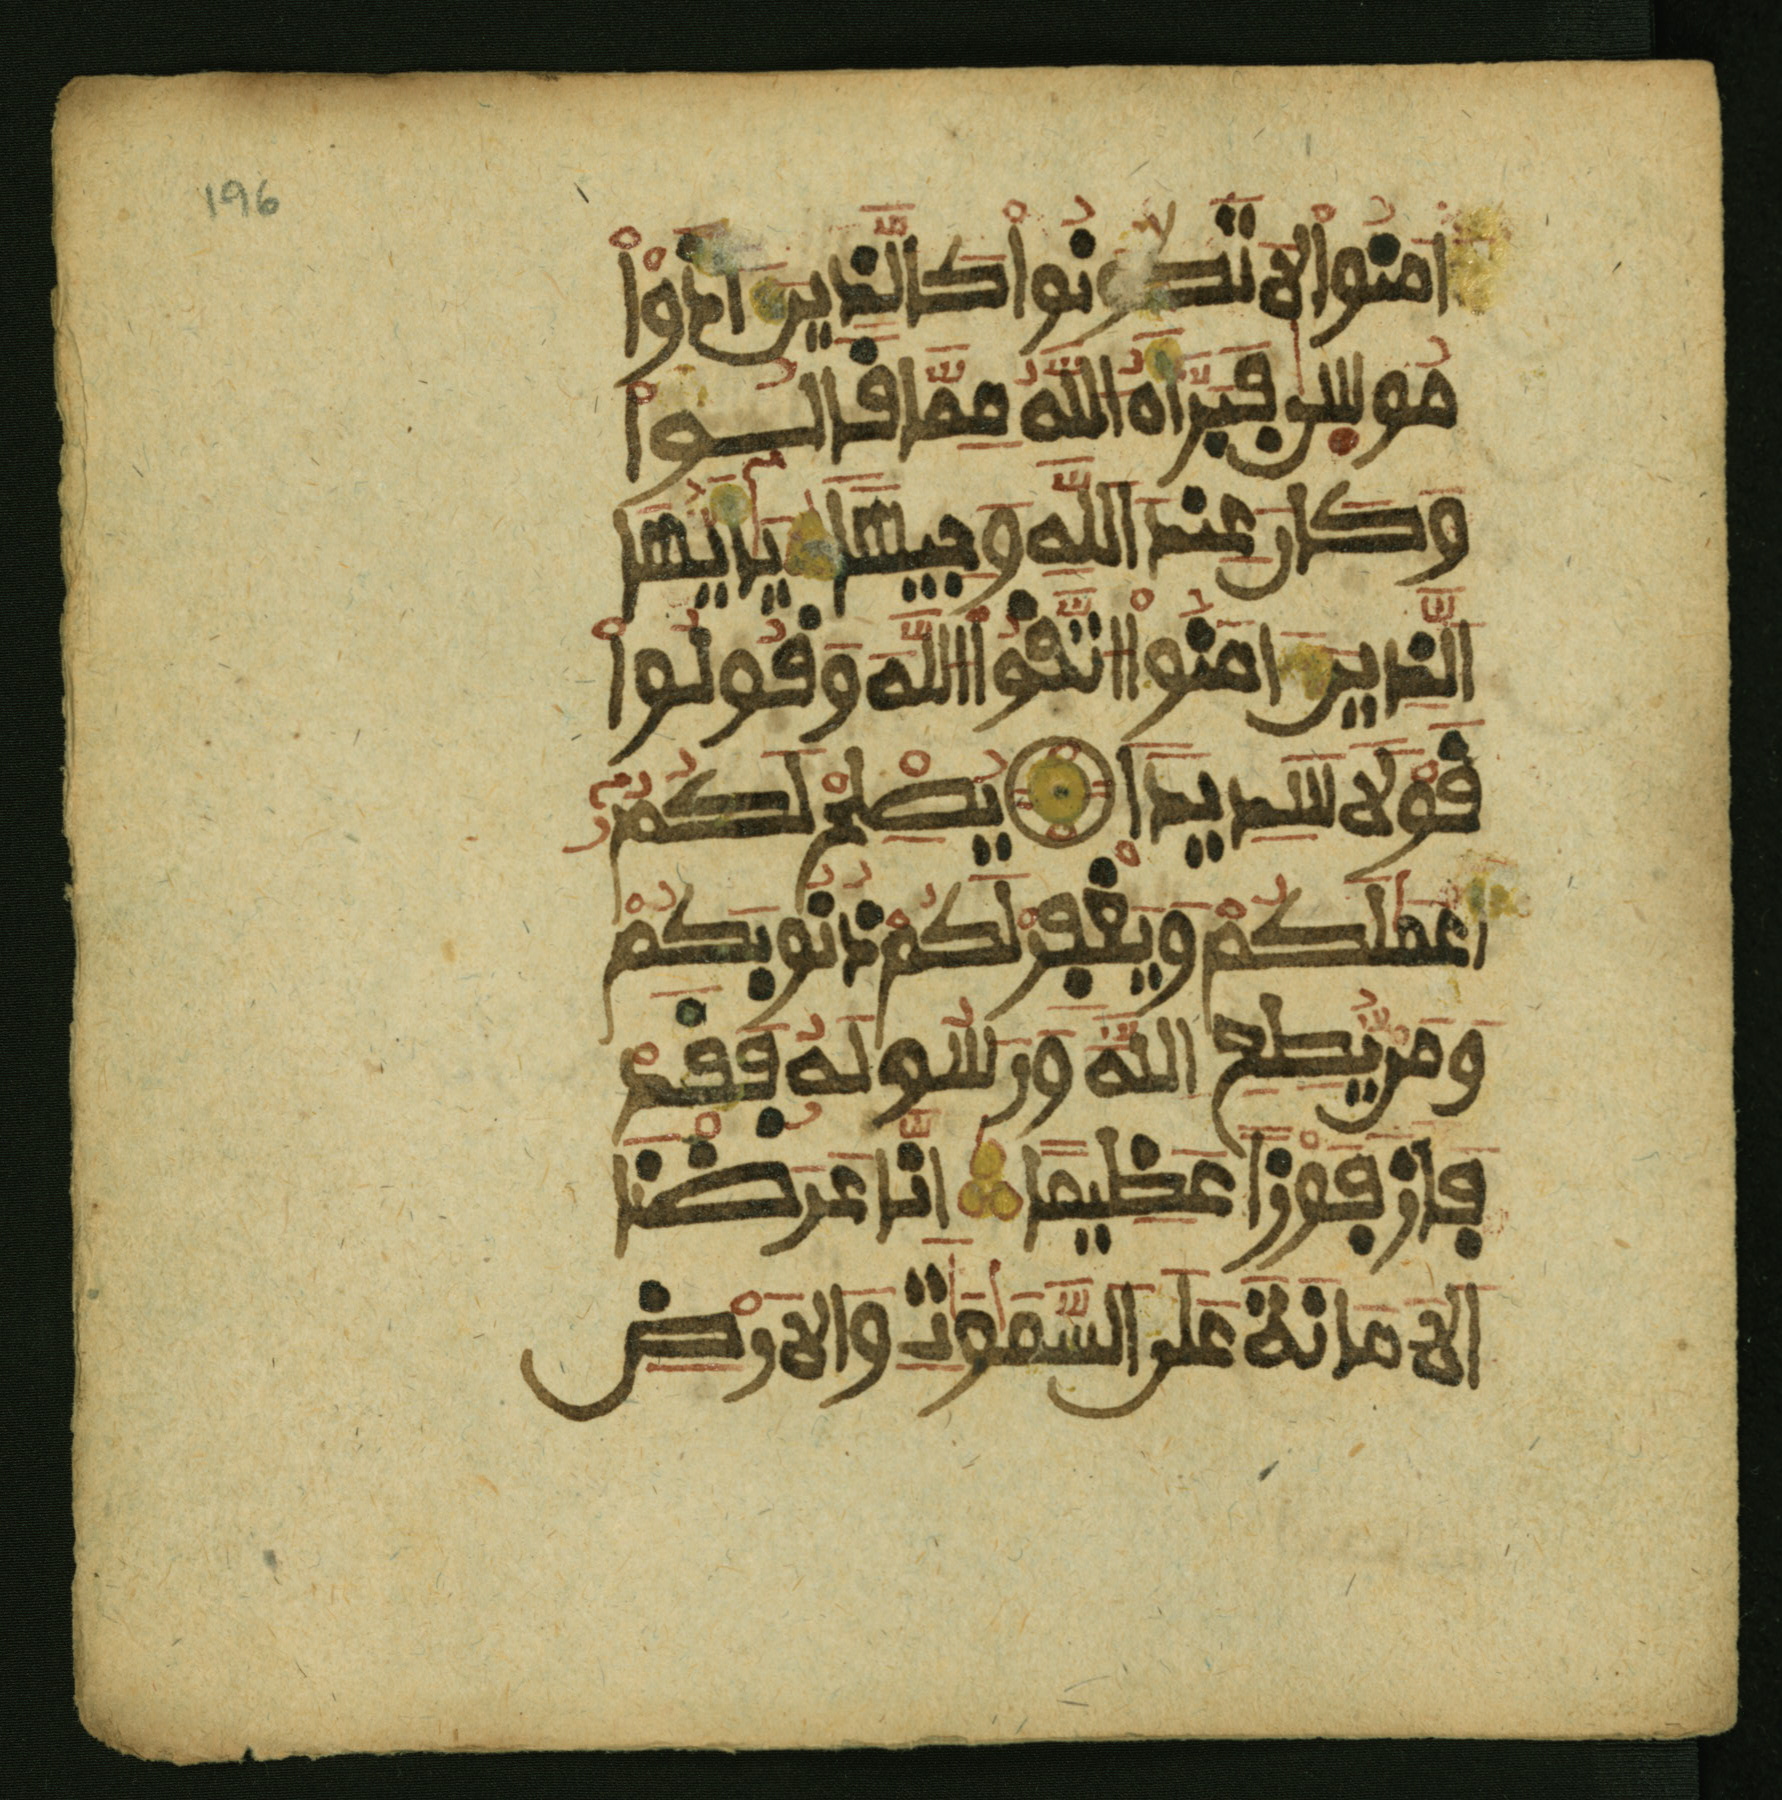 196
ءَامَنُواْ لَا تَكُونُواْ كَالَّذِينَ ءَاذَوْاْ
مُوسىٰ فَبَرَّأَهُ اللَّهُ مِمَّا قَالُواْ
وَكَانَ عِندَ اللَّهِ وَجِيهًا يَٰأَيُّهَا
الَّذِينَ ءَامَنُواْ اتَّقُواْ اللَّهَ وَقُولُواْ
قَوْلًا سَدِيدًا يُصْلِحْ لَكُمُۥ
أَعْمَٰلَكُمْ وَيَغْفِرْ لَكُمْ ذُنُوبَكُمْ
وَمَنْ يُّطِعِ اللَّهَ وَرَسُولَهُ فَقَدْ
فَازَ فَوْزًا عَظِيمًا إِنَّا عَرَضْنَا
الَامَانَةَ عَلَى السَّمَٰوَٰتِ وَالَارْضِ